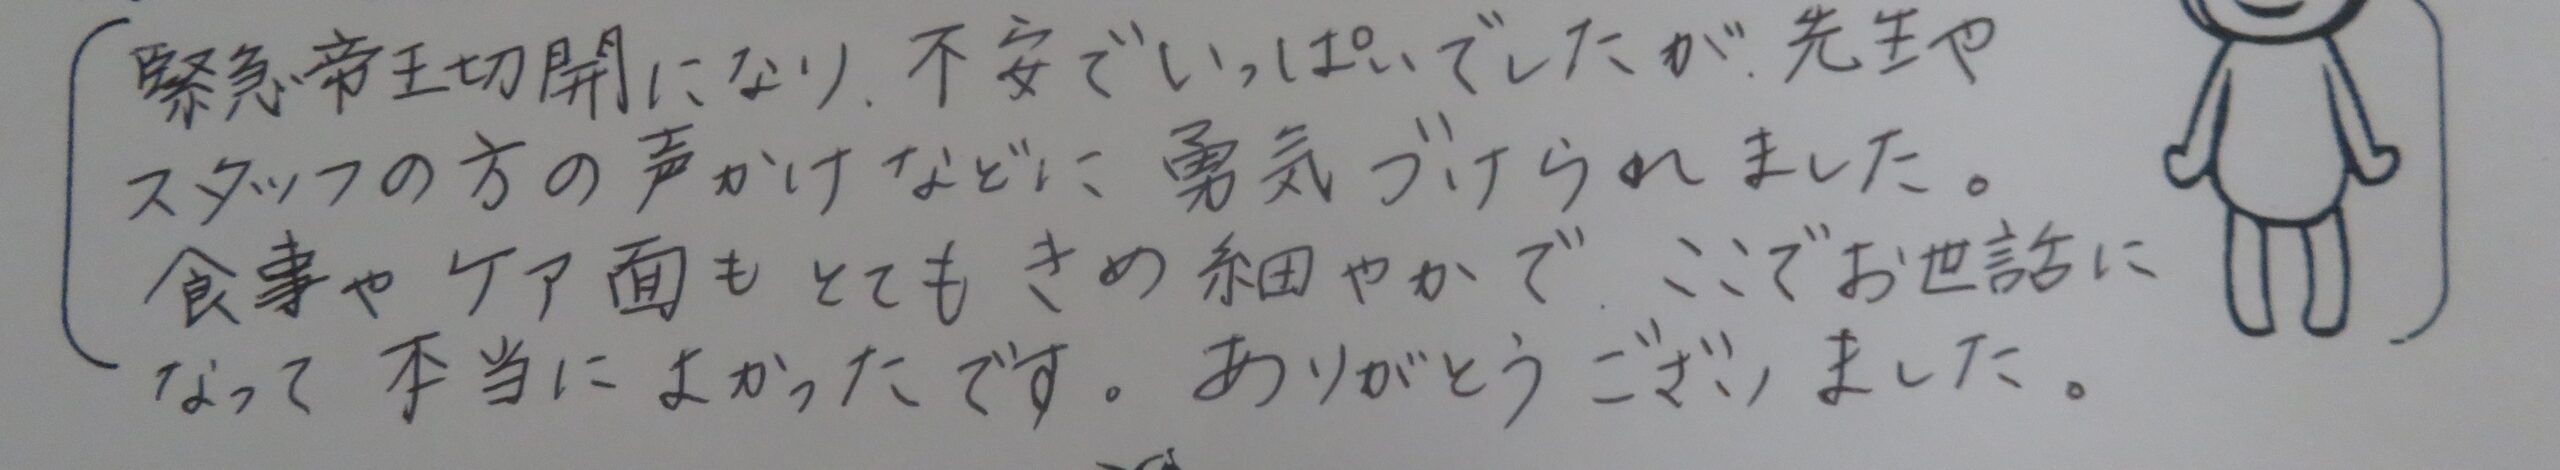 緊急帝王切開になり、不安でいっぱいでしたが、先生や
スタッフの方の声かけなどに勇気づけられました。
食事やケア面もとてもきめ細やかで、ここでお世話に
なって本当によかったです。ありがとうございました。